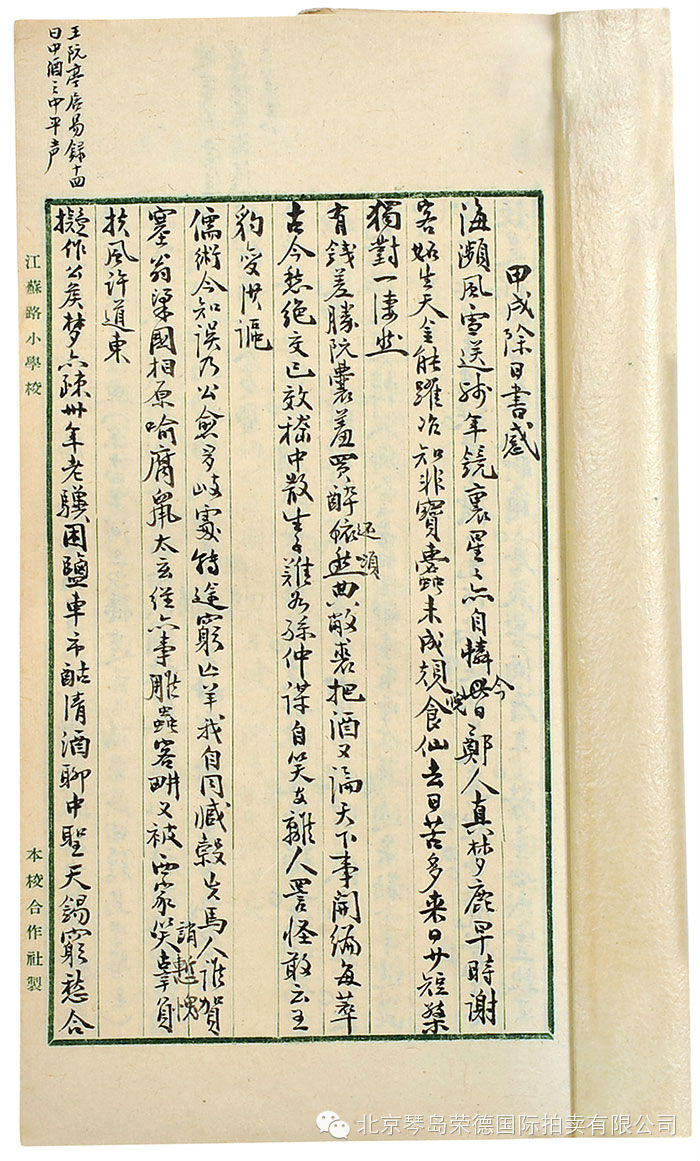 王阮亭居易録十四
曰中酒之中平声
甲戌除日書感
海瀕風雪送殘年鏡裏星〻亦自憐昔〻鄭人真夢鹿早時謝
今
客生天金能躍冶知非寶蠹未成食仙去日苦多来日短檠
獨對一悽然
有錢差勝阮囊羞買醉依然典敝裘把酒又論天下事開編每萃
還須
古今愁絕交已效嵇中散生子難為孫仲謀自笑支離人詈怪敢云王
豹變洪謳
儒術今知誤乃公愈多岐處轉途窮亡羊我自同臧穀失馬人誰賀
塞翁梁國相原喻腐鼠太玄經亦事雕蟲客嘲又被西家笑辜負
誚慙愧
扶風許道東
擬作公矦夢亦疎卅年老驥困鹽車市酤清酒聊中聖天錫窮愁合
江蘇路小學校
本校合作社製
北京琴岛荣德国际拍卖有限公司